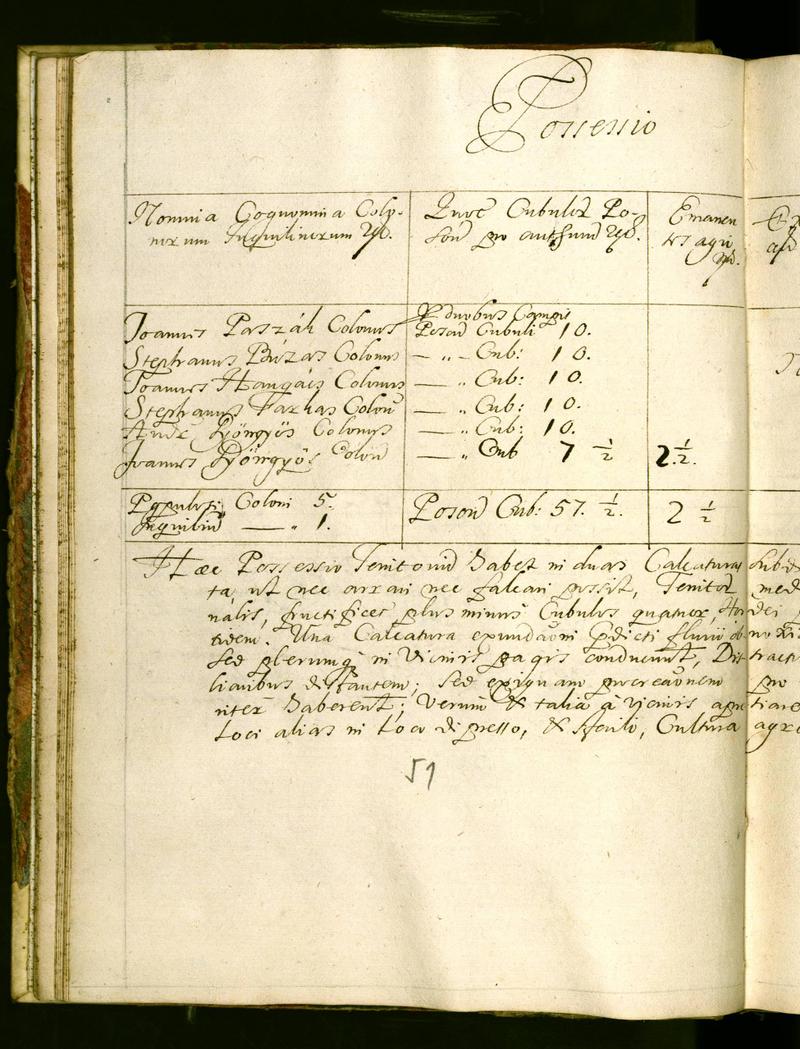 Possessio
Nomina Cognomina Colo-
norum Inquilinorum
Quot Cubulor Po-
son pro autumn
Emanen
tes agri
Joannes Paszák Colonus
duobus Campis
Poson Cubuli 10.
Stephanus Búzás Colonus — „ — Cub: 10.
Joannes Hangács Colonus — „ Cub: 10.
Stephanus Farkas Colon — „ Cub: 10.
Andr Gyöngyös Colonus — „ Cub: 10.
Joannes Gyöngyös Colon — „ Cub 7 ½ 2 ½.
Populosi Coloni 5.
Inquilin — „ 1.
Poson Cub: 57. ½. 2 ½
Hæc Possessio Territorium habet in duas Calcaturas
ta, ut nec arari nec falcari possit, Territor
nalis, fructifices plus minus Cubulos quatuor,
tidem. Una Calcatura exundaoni pdicti fluvii ob
sed plerumq in Vicinis pagis conducunt, Dis tracti
liaribus distantem; sed exiguam procreaonem pro
riter haberent; Verum & talia à Vicinis
Loci alias in Loco depresso, & Cultura agro
51